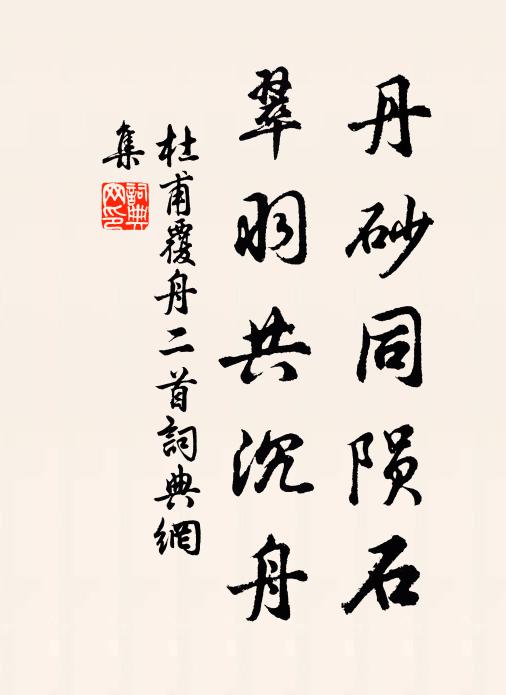 丹砂同陨石
翠羽共沉舟
杜甫覆舟二首詞典網
集
詞典
网印